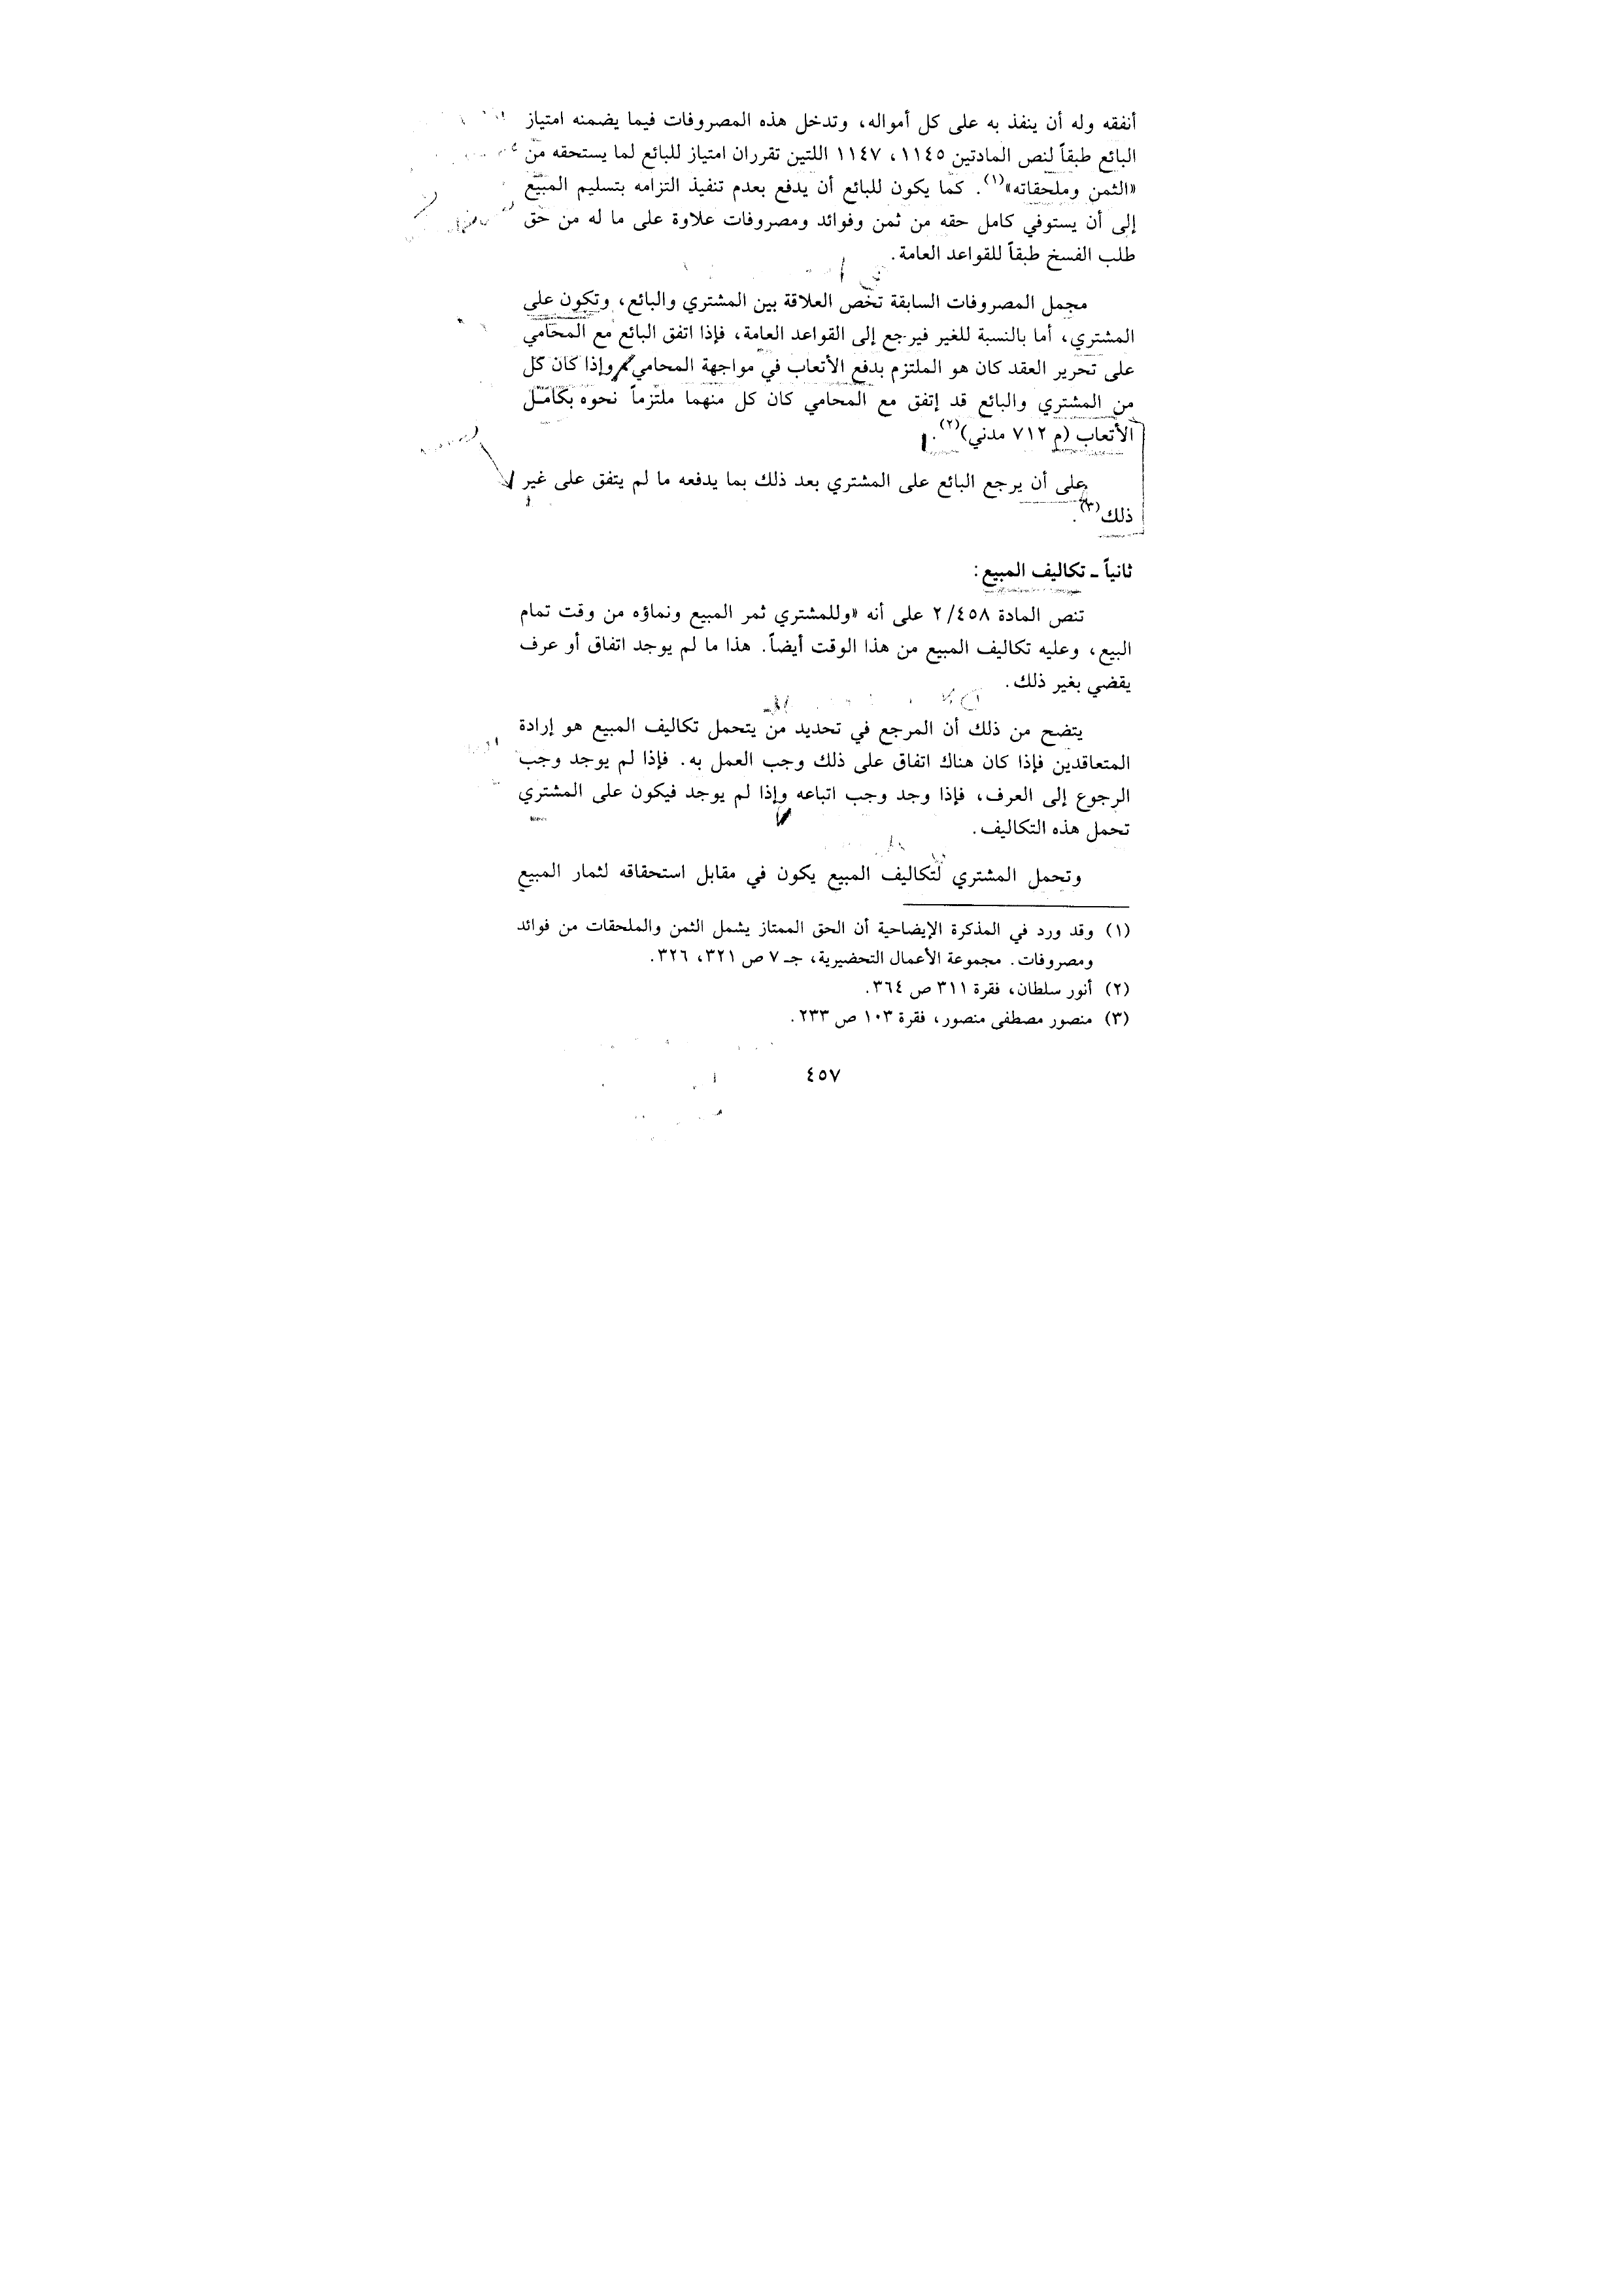 أنفقه وله أن ينفذ به على كل أمواله، وتدخل هذه المصروفات فيما يضمنه امتياز
البائع طبقاً لنص المادتين ١١٤٥، ١١٤٧ اللتين تقرران امتياز للبائع لما يستحقه من
«الثمن وملحقاته»(١). كما يكون للبائع أن يدفع بعدم تنفيذ التزامه بتسليم المبيع
إلى أن يستوفي كامل حقه من ثمن وفوائد ومصروفات علاوة على ما له من حق
طلب الفسخ طبقاً للقواعد العامة.
مجمل المصروفات السابقة تخص العلاقة بين المشتري والبائع، وتكون على
المشتري، أما بالنسبة للغير فيرجع إلى القواعد العامة، فإذا اتفق البائع مع المحامي
على تحرير العقد كان هو الملتزم بدفع الأتعاب في مواجهة المحامي وإذا كان كل
من المشتري والبائع قد إتفق مع المحامي كان كل منهما ملتزماً نحوه بكامل
الأتعاب (م ٧١٢ مدني)(٢).
على أن يرجع البائع على المشتري بعد ذلك بما يدفعه ما لم يتفق على غير
ذلك(٣).
ثانياً ـ تكاليف المبيع:
تنص المادة ٢/٤٥٨ على أنه «وللمشتري ثمر المبيع ونماؤه من وقت تمام
البيع، وعليه تكاليف المبيع من هذا الوقت أيضاً. هذا ما لم يوجد اتفاق أو عرف
يقضي بغير ذلك.
يتضح من ذلك أن المرجع في تحديد من يتحمل تكاليف المبيع هو إرادة
المتعاقدين فإذا كان هناك اتفاق على ذلك وجب العمل به. فإذا لم يوجد وجب
الرجوع إلى العرف، فإذا وجد وجب اتباعه وإذا لم يوجد فيكون على المشتري
تحمل هذه التكاليف.
وتحمل المشتري لتكاليف المبيع يكون في مقابل استحقاقه لثمار المبيع
(١) وقد ورد في المذكرة الإيضاحية أن الحق الممتاز يشمل الثمن والملحقات من فوائد
ومصروفات. مجموعة الأعمال التحضيرية، جـ ٧ ص ٣٢١، ٣٢٦.
(٢) أنور سلطان، فقرة ٣١١ ص ٣٦٤.
(٣) منصور مصطفى منصور، فقرة ١٠٣ ص ٢٣٣.
٤٥٧